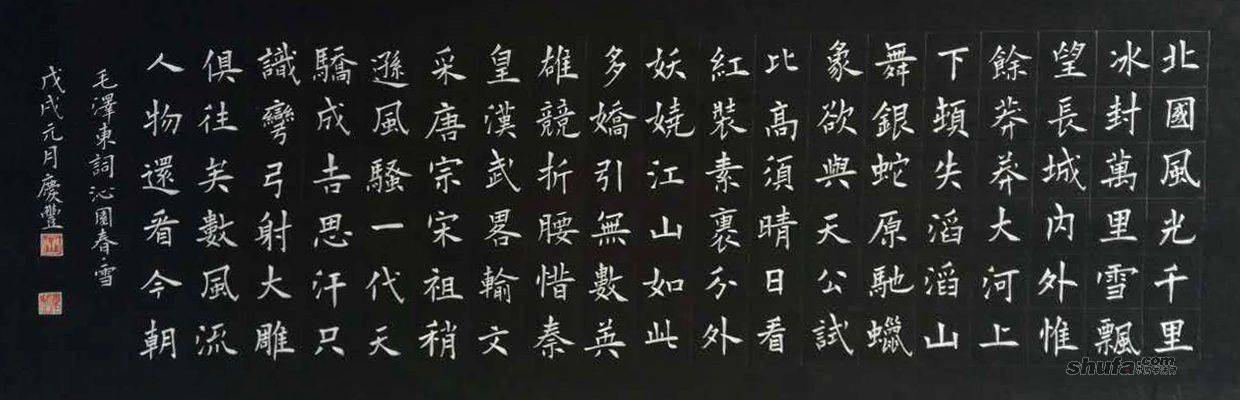 北國風光千里
冰封萬里雪飄
望長城內外惟
餘莽莽大河上
下頓失滔滔山
舞銀蛇原馳蠟
象欲與天公試
比高須晴日看
紅裝素裹分外
妖嬈江山如此
多嬌引無數英
雄競折腰惜秦
皇漢武畧輸文
采唐宗宋祖稍
遜風騷一代天
驕成吉思汗只
識彎弓射大雕
俱往矣數風流
人物還看今朝
毛澤東詞沁園春雪
戊戌元月慶豐
shufa.com